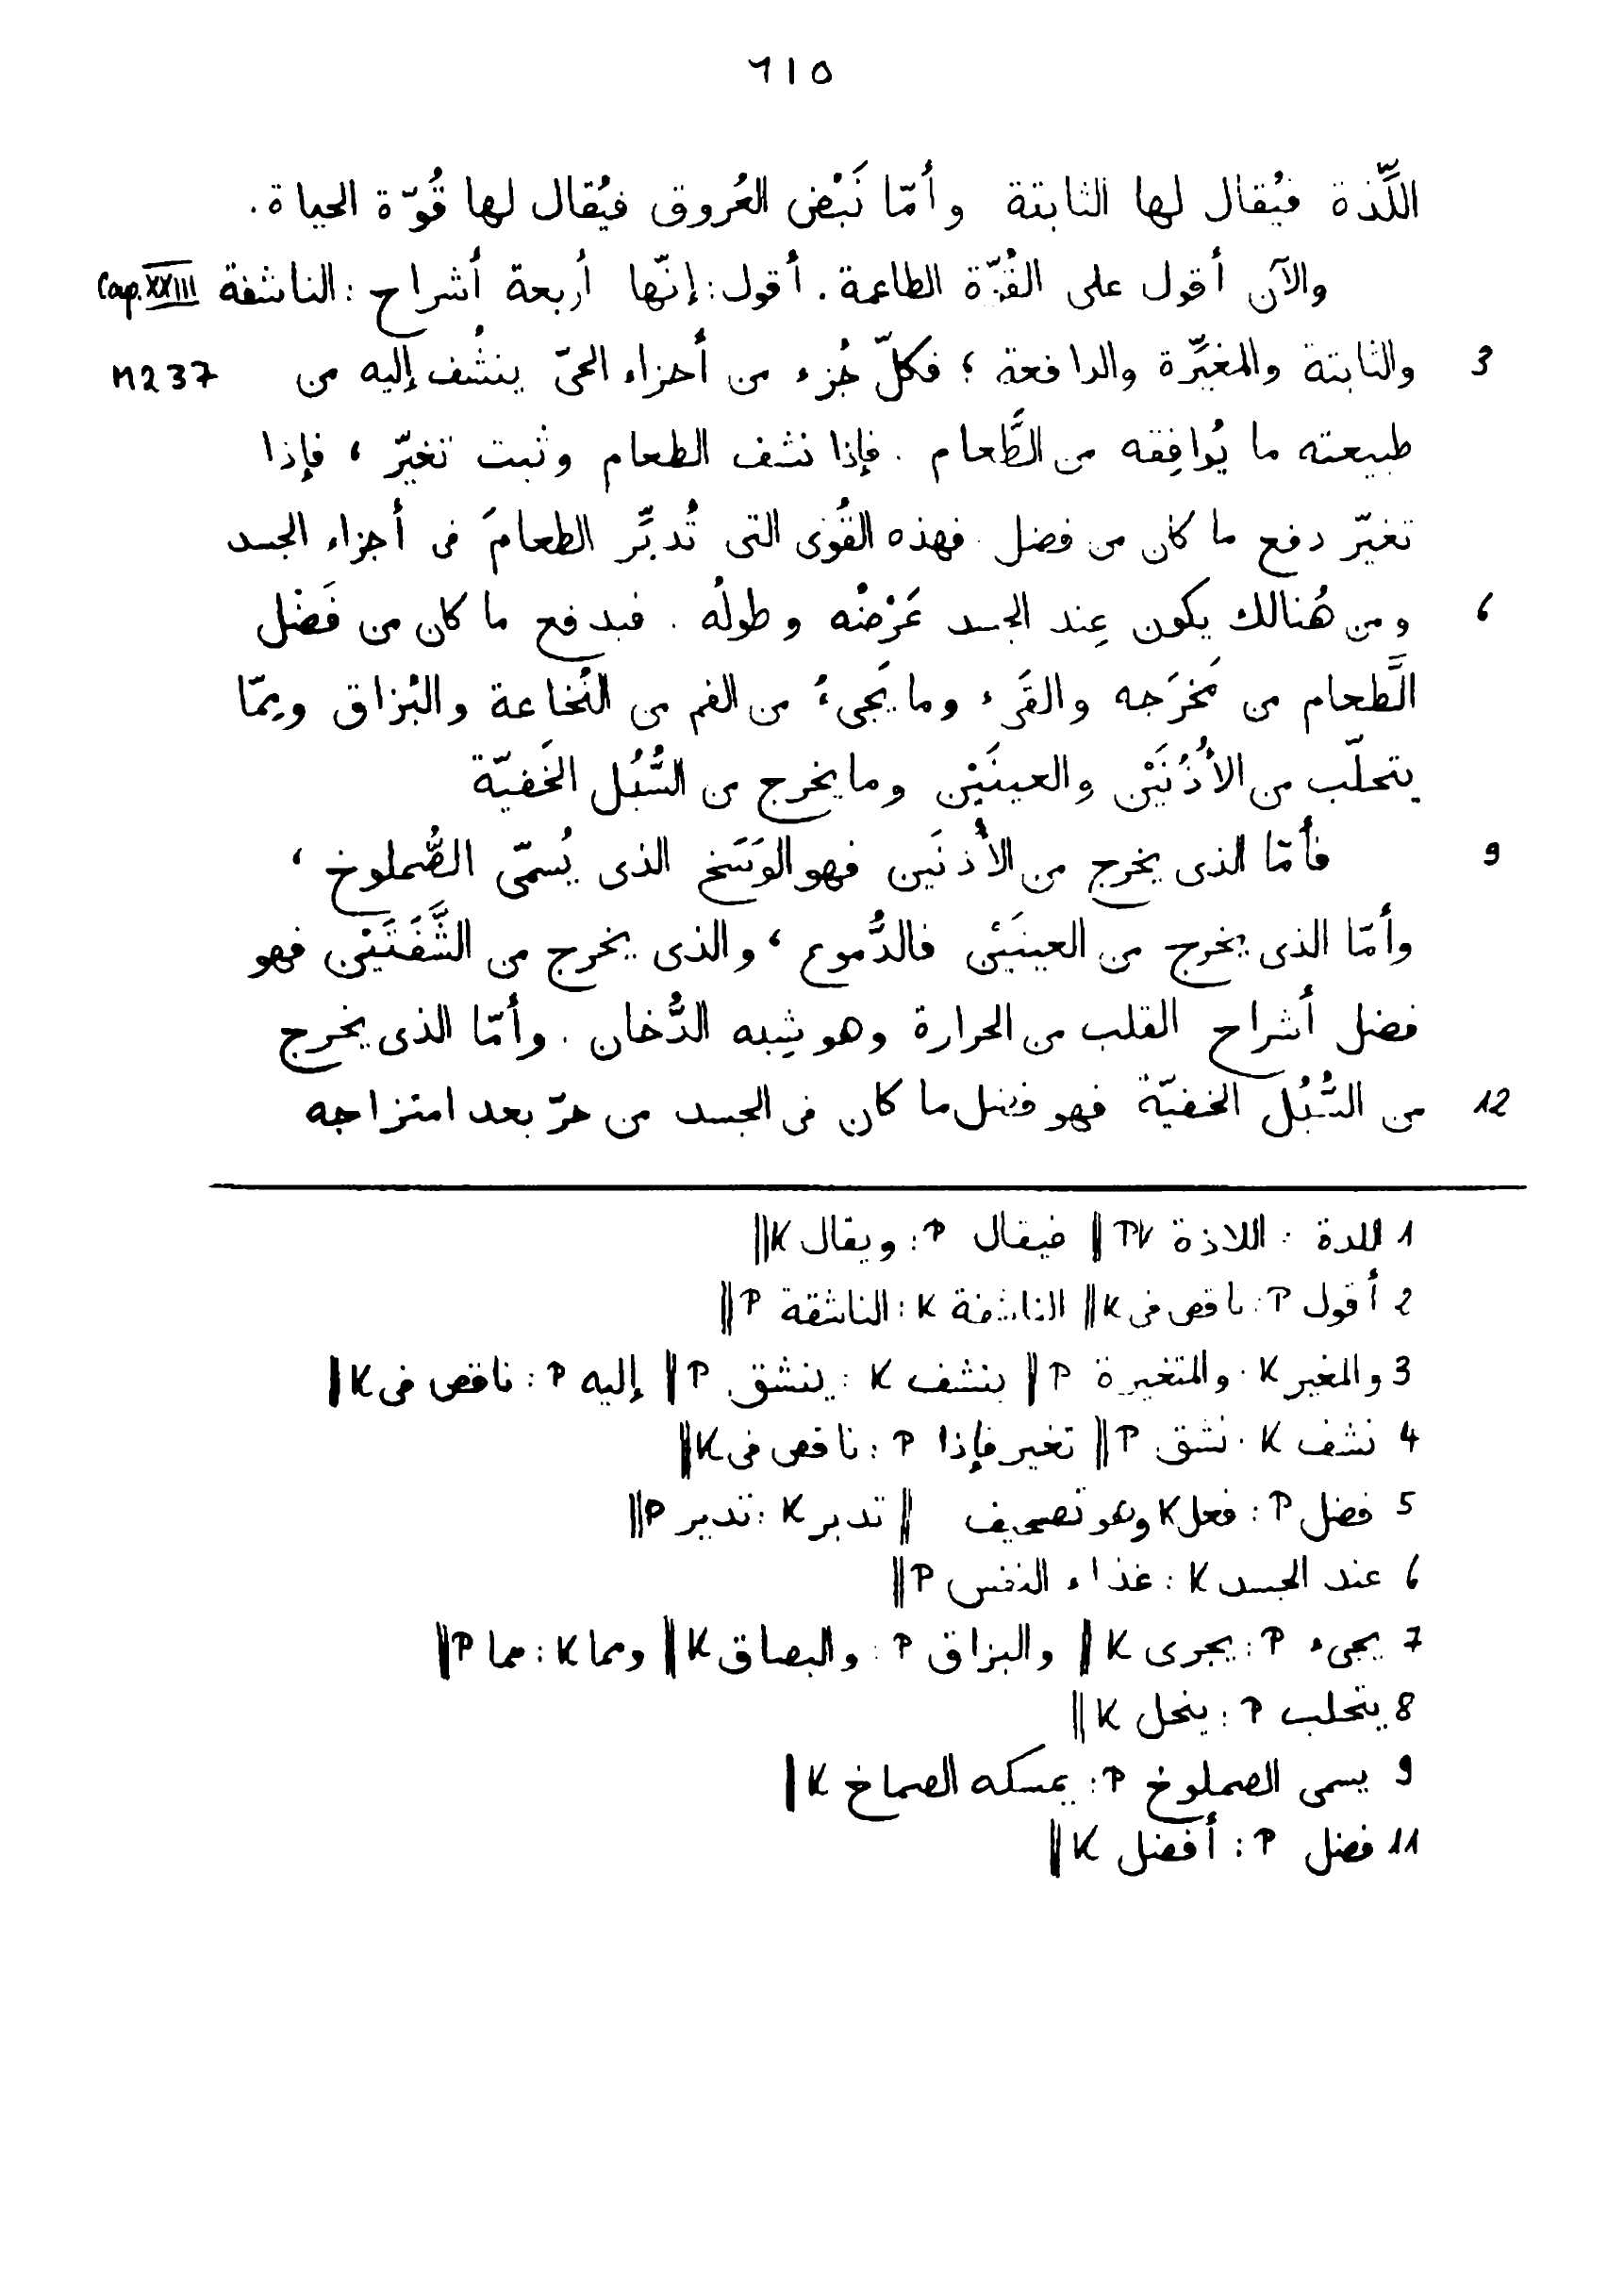 ٦١٥
اللَّذة فيُقال لها الثابتة وأمّا نَبْض العُروق فيُقال لها قُوّة الحياة.
والآن أقول على القُوّة الطاعمة. أقول: إنّها أربعة أشراح: الناشفة Cap. XXIII
3 والثابتة والمغيِّرة والدافعة؛ فكلّ جُزء من أجزاء الحىّ ينشُف إليه من M 237
طبيعته ما يُوافِقه من الطَّعام. فإذا نشف الطعام وثبت تغيّر، فإذا
تغيّر دفع ما كان من فضل. فهذه القُوى التى تُدبِّر الطعامَ فى أجزاء الجسد
6 ومن هُنالك يكون عِند الجسد عَرْضُه وطولُه. فيدفع ما كان من فَضْل
الطَّعام من مَخرَجه والقَىء وما يَجىءُ من الفم من النُخاعة والبُزاق وممّا
يتحلّب من الأُذُنَيْن والعينَيْن وما يخرج من السُّبُل الخَفيّة
9 فأمّا الذى يخرج من الأُذنَين فهو الوَسَخ الذى يُسمّى الصُّملوخ،
وأمّا الذى يخرج من العينَيْن فالدُّموع، والذى يخرج من الشَّفَتَيْن فهو
فضل أشراح القلب من الحرارة وهو شِبه الدُّخان. وأمّا الذى يخرج
12 من السُّبُل الخفيّة فهو فضل ما كان فى الجسد من حرّ بعد امتزاجه
1 اللدة : اللاذة PK || فيقال P : ويقال K ||
2 أقول P : ناقص فى K || الناشفة K : الناشقة P ||
3 والمغير K . والمتغيرة P || ينشف K : ينشق P || إليه P : ناقص فى K ||
4 نشف K . نشق P || تغير فإذا P : ناقص فى K ||
5 فضل P : فعل K وهو تصحيف || تدبر K : تدير P ||
6 عند الجسد K : غذاء النفس P ||
7 يجىء P : يجرى K || والبزاق P : والبصاق K || ومما K : مما P ||
8 يتحلب P : ينحل K ||
9 يسمى الصملوخ P : يمسكه الصماخ K ||
11 فضل P : أفضل K ||